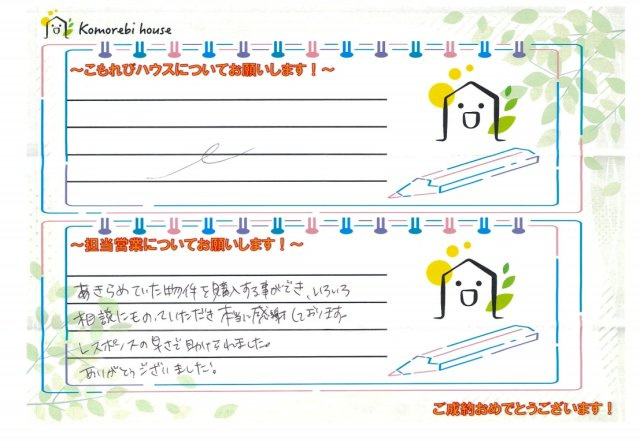 Komorebi house
～こもれびハウスについてお願いします！～
～担当営業についてお願いします！～
あきらめていた物件を購入する事ができ、いろいろ
相談にものっていただき本当に感謝しております。
レスポンスの早さで助けられました。
ありがとうございました。
ご成約おめでとうございます！